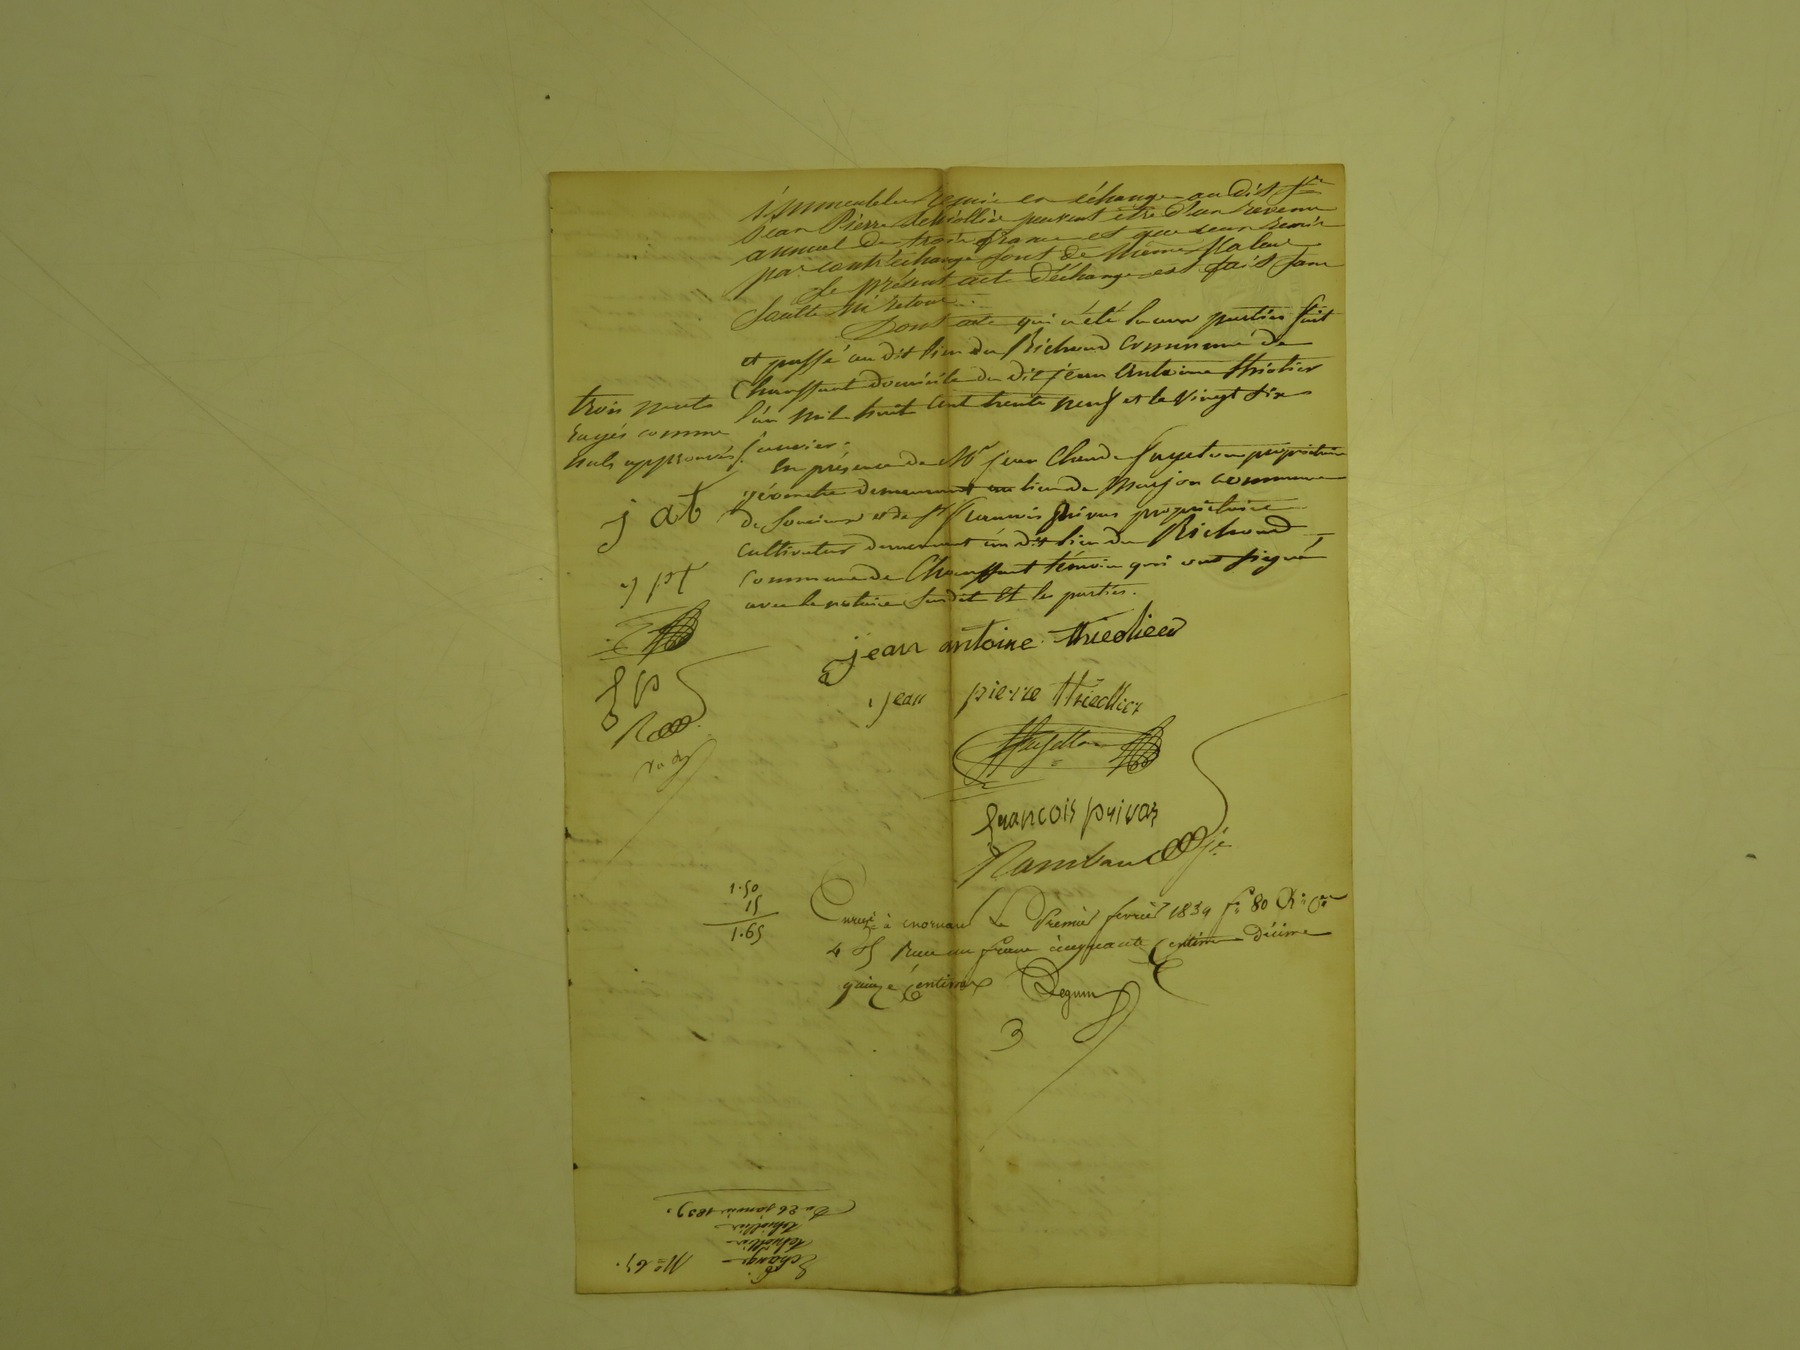 immeubles remis en échange au dit Sr
Jean Pierre thiollier peuvent être d'un revenu
annuel de trois francs et que ceux remis
par contréchange sont de même valeur
Le présent acte d'échange est fait sans
soulte ni retour.
Dont acte qui a été lu aux parties fait
et passé au dit lieu du Richoud commune de
Chaussant domicile du dit jean Antoine thiolier
l'an mil huit cent trente neuf et le vingt six
janvier.
En présence de Mr jean Claude fayet propriétaire
demeurant au lieu de commune
de et de Sr françois privas propriétaire
cultivateur demeurant au dit lieu du Richoud
commune de Chaussant témoins qui ont signé
avec le notaire susdit et les parties.
trois mots
rayés comme
nuls approuvés
j at
j pt
fp
jean antoine thieolieer
jean pierre thieollier
françois privas
Rambaud
1.50
15
1.65
à mornant Le Premier fevrier 1839 fo 80
Recu un franc cinquante Centimes décime
quinze Centimes
3
No 67.
Echange
thiollier
thiollier
Du 26 janvier 1839.